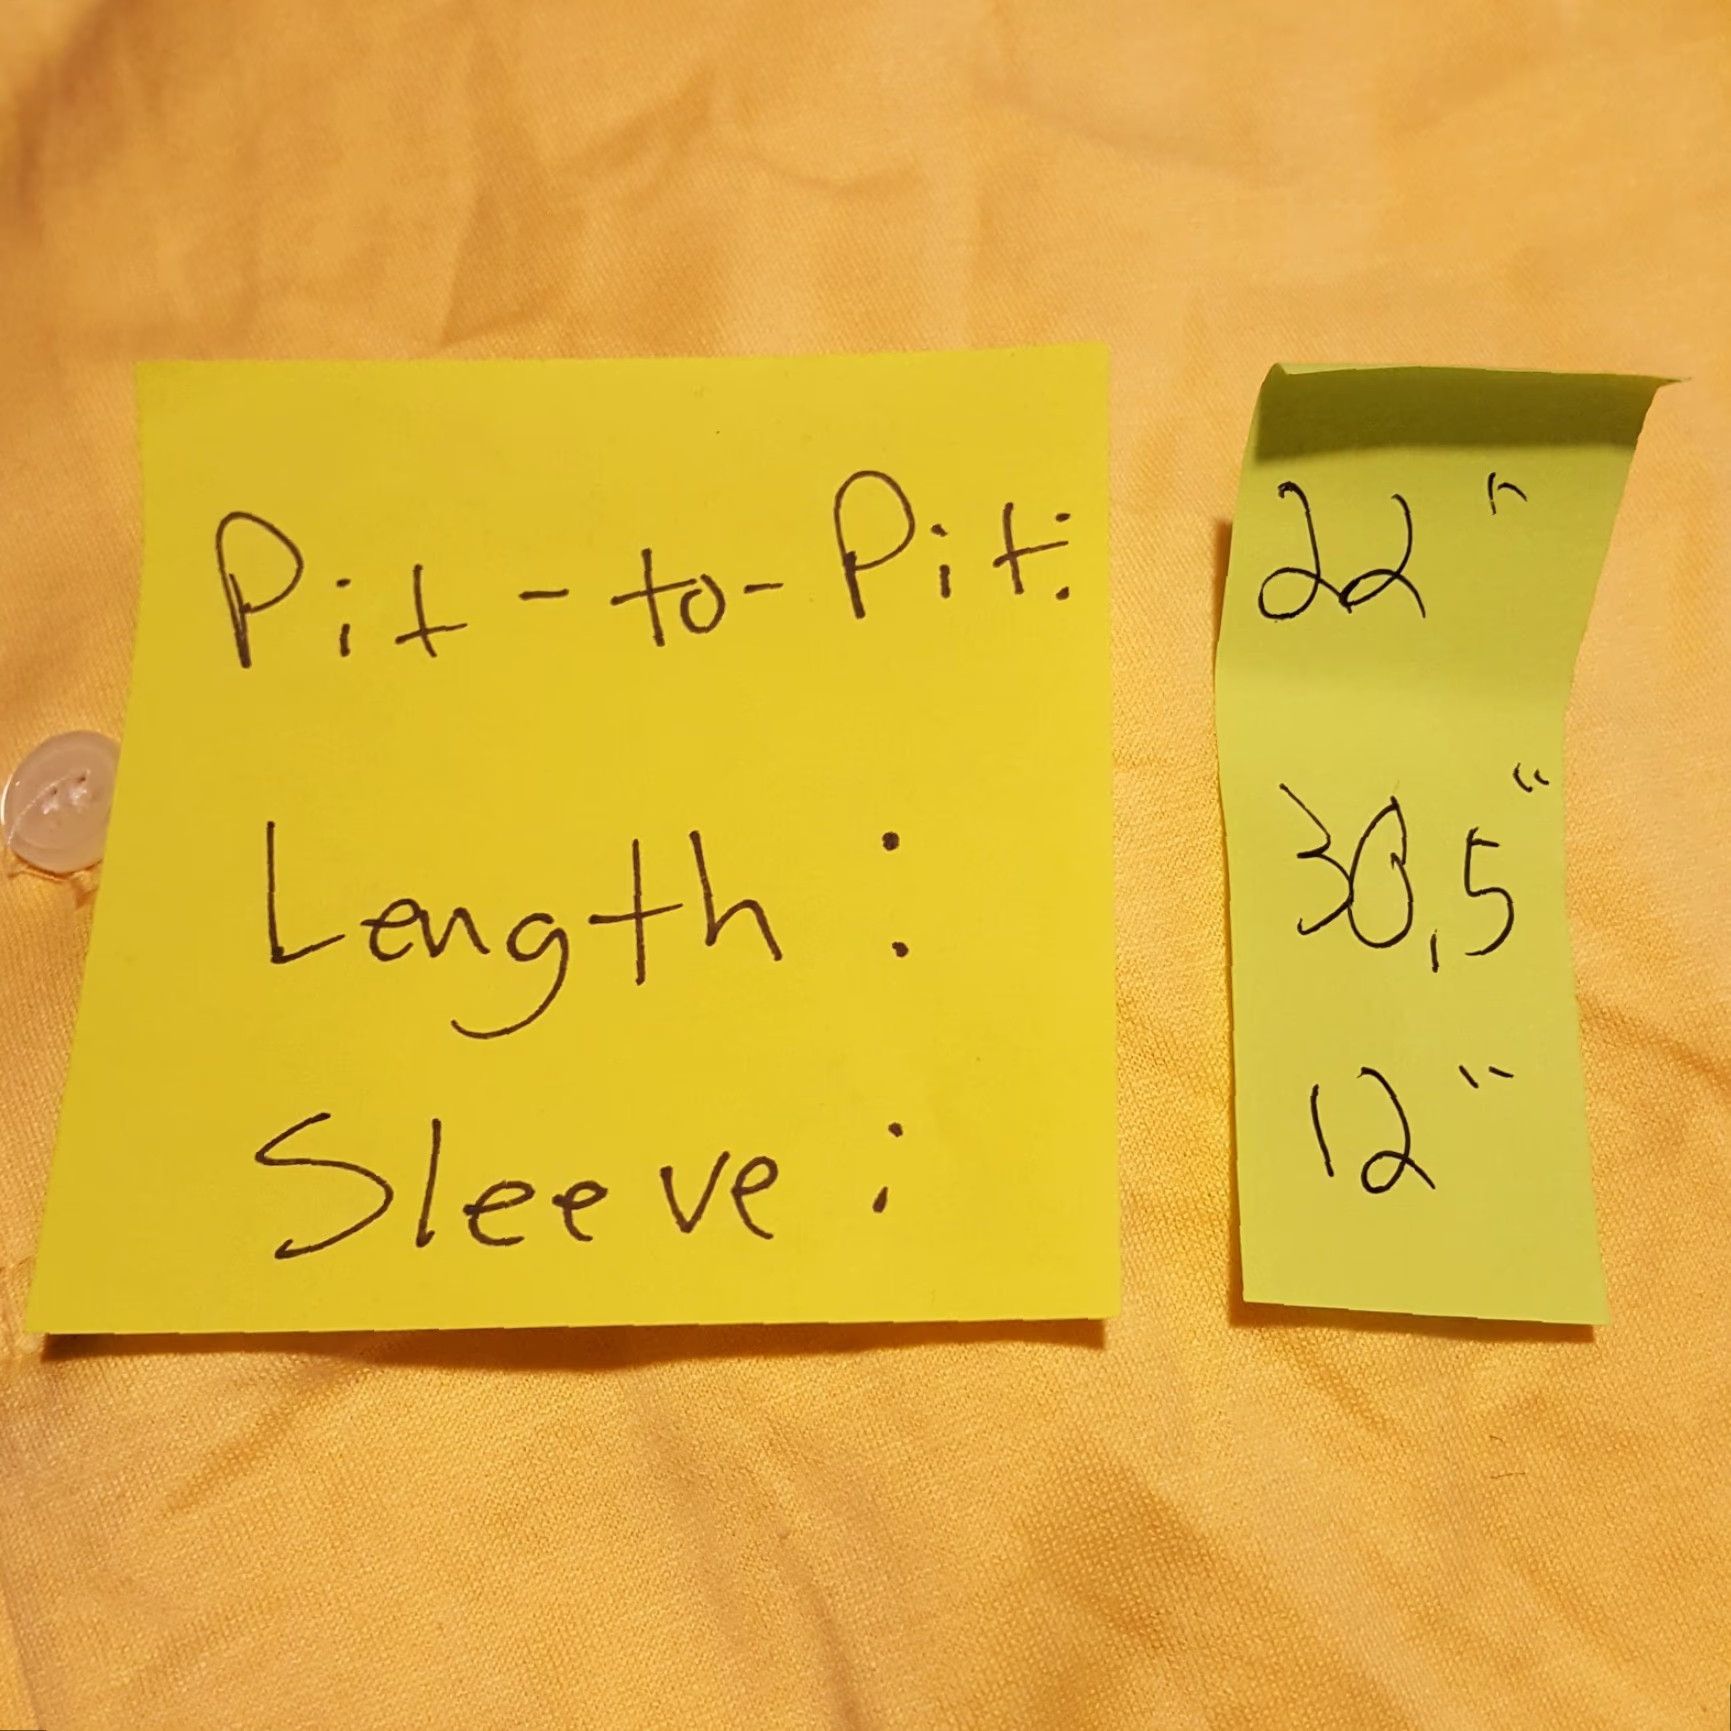 Pit-to-Pit: 22"
Length: 30.5"
Sleeve: 12"